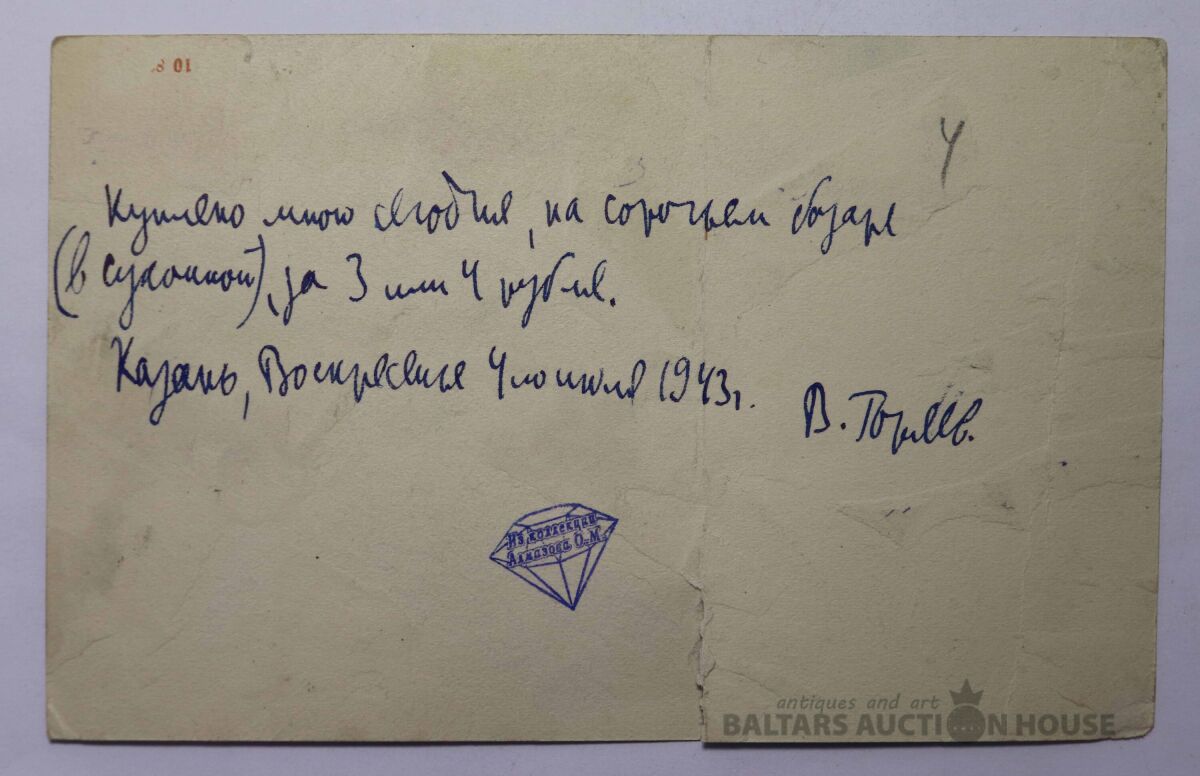 4
Куплено мною сегодня, на сорочьем базаре
(в суконной), за 3 или 4 рубля.
Казань, Воскресенье 4го июля 1943г.
В. Горяев.
Из коллекции
Алмазова О.М.
antiques and art
BALTARS AUCTION HOUSE